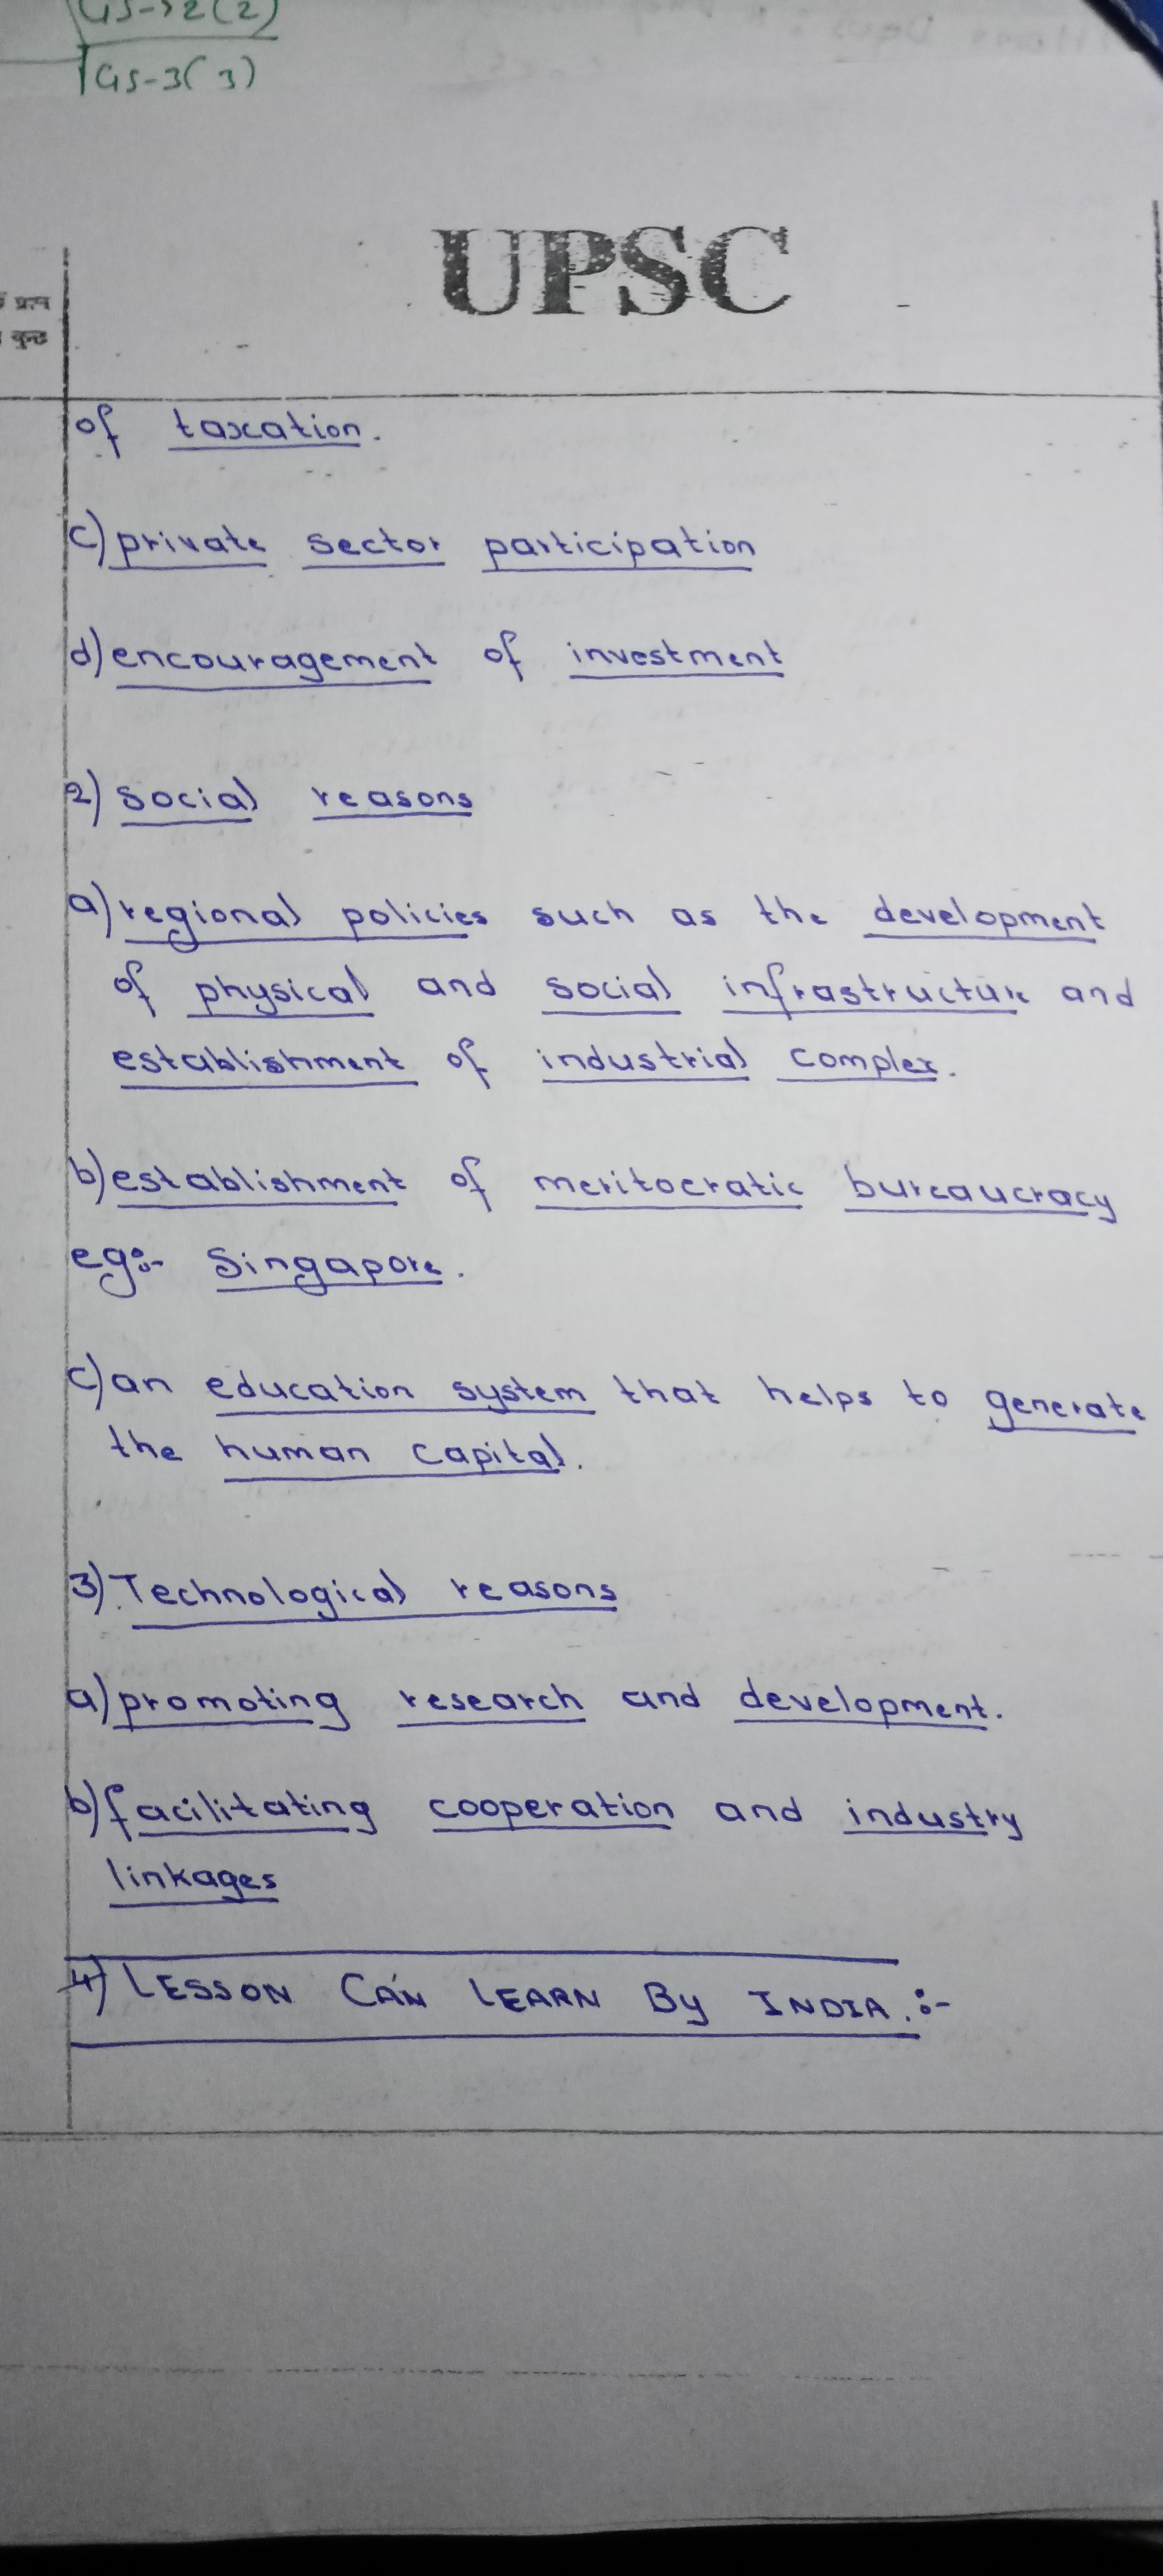 GS-2(2)
GS-3(3)
UPSC
प्रश्न
of taxation.
c) private sector participation
d) encouragement of investment
2) social reasons
a) regional policies such as the development
of physical and social infrastructure and
establishment of industrial complex.
b) establishment of meritocratic bureaucracy
eg:- Singapore.
c) an education system that helps to generate
the human capital.
3) Technological reasons
a) promoting research and development.
b) facilitating cooperation and industry
linkages
4) LESSON CAN LEARN BY INDIA.:-